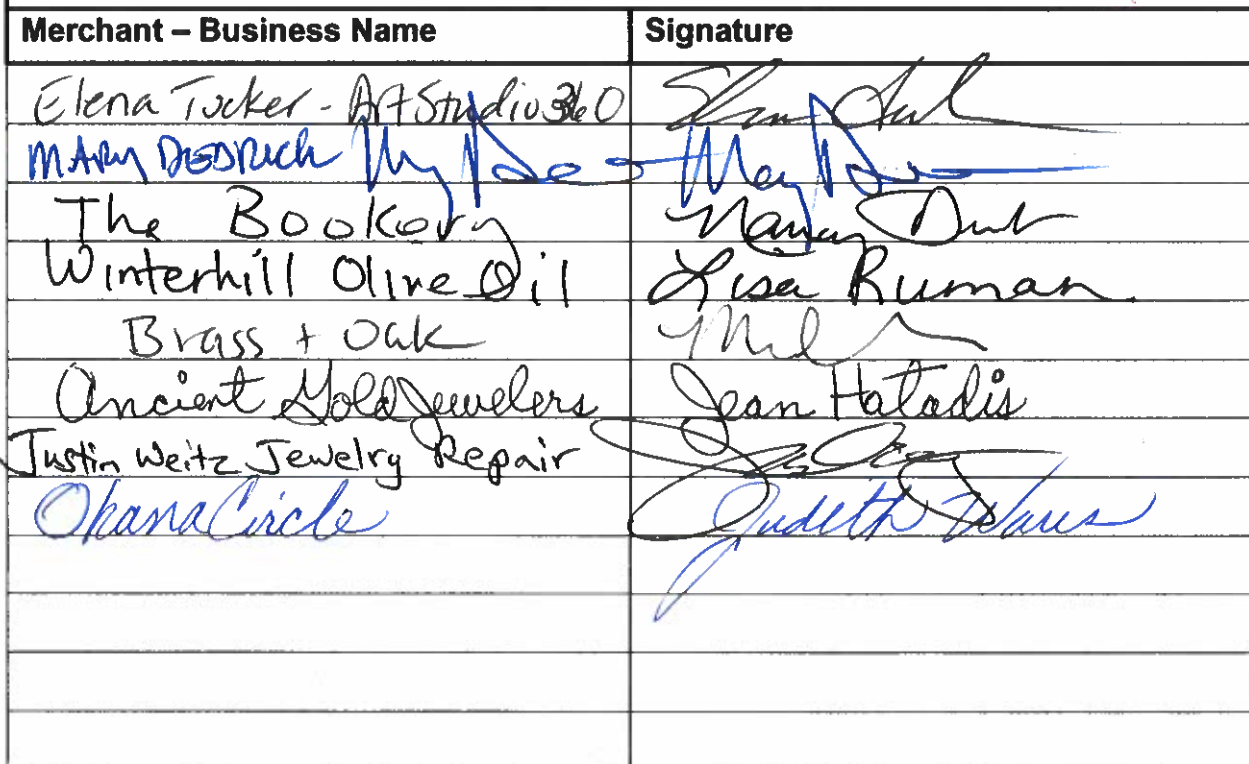 Merchant – Business Name Signature
Elena Tucker - Art Studio 360
MARY DEDRICH
The Bookery Nancy
Winterhill Olive Oil Lisa Ruman
Brass + Oak
Ancient Gold Jewelers Jean Hatadis
Justin Weitz Jewelry Repair
Ohana Circle Judeth